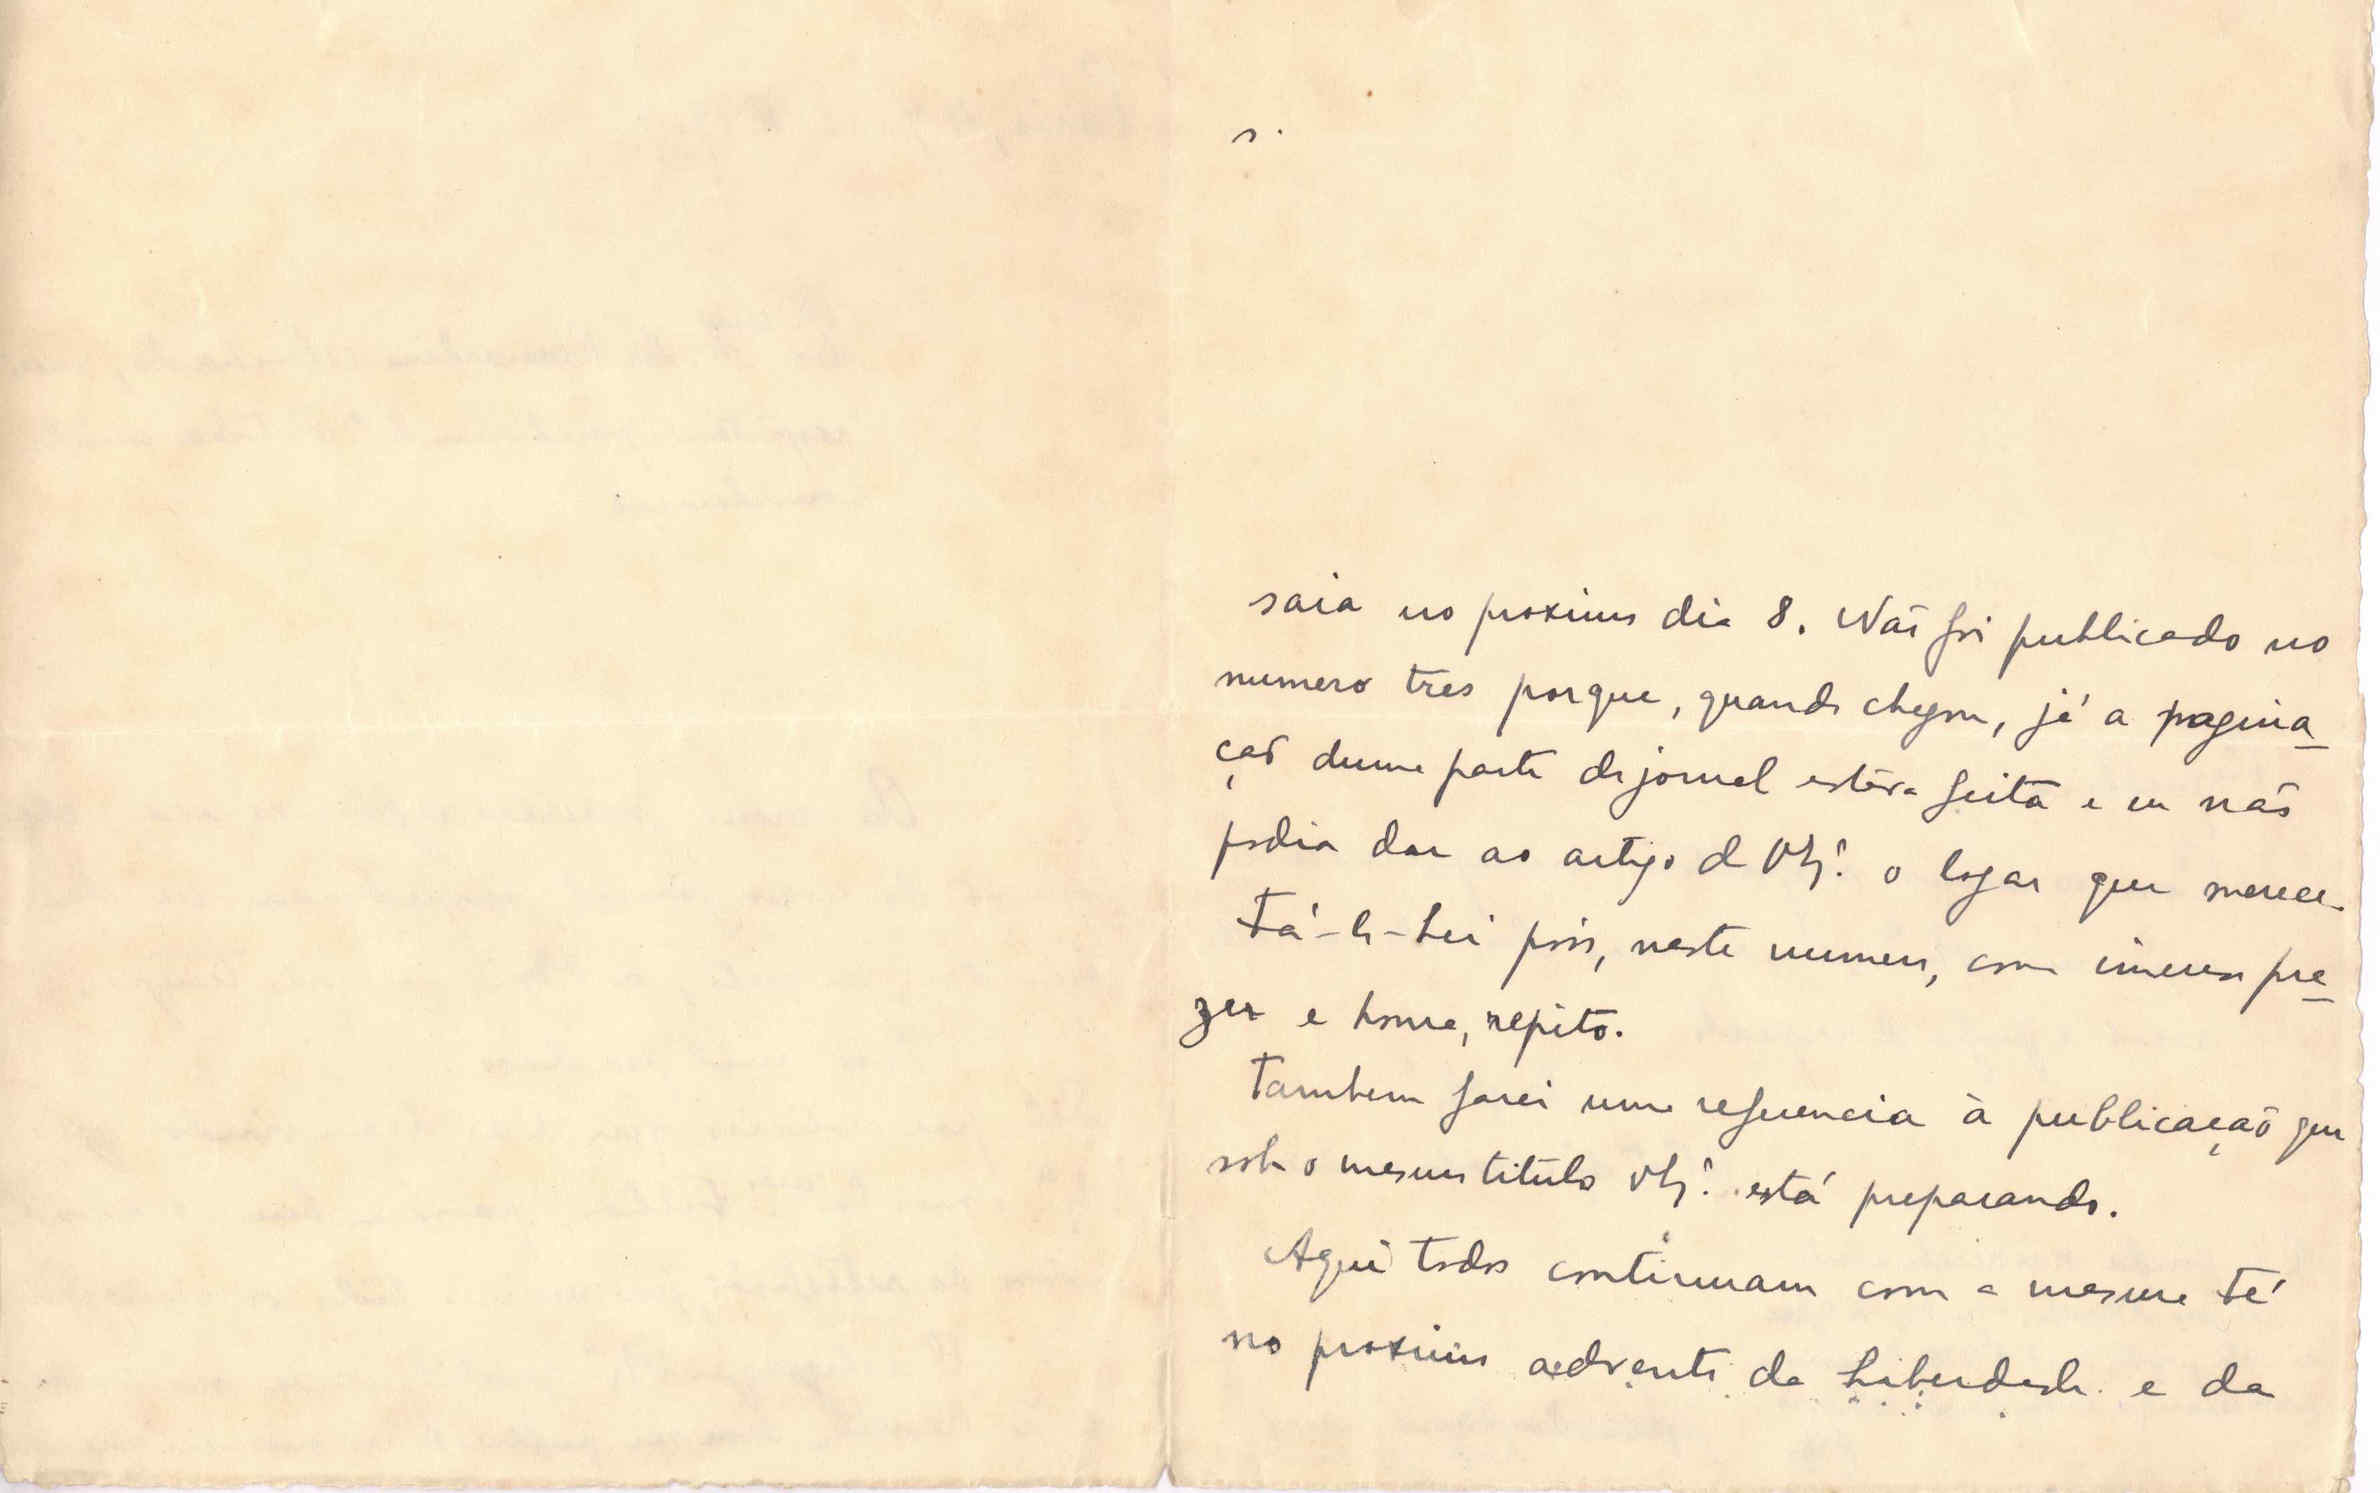 saia no proximo dia 8. Não foi publicado no
numero tres porque, quando chegou, já a pagina-
ção duma parte do jornal estáva feita e eu não
podia dar ao artigo de V. Ex.ª o logar que merece.
Fá-lo-hei pois, neste numero, com imenso pra-
zer e honra, repito.
Tambem farei uma referencia à publicação que
sob o mesmo titulo V. Ex.ª está preparando.
Aqui todos continuam com a mesma fé
no proximo advento da Liberdade e da